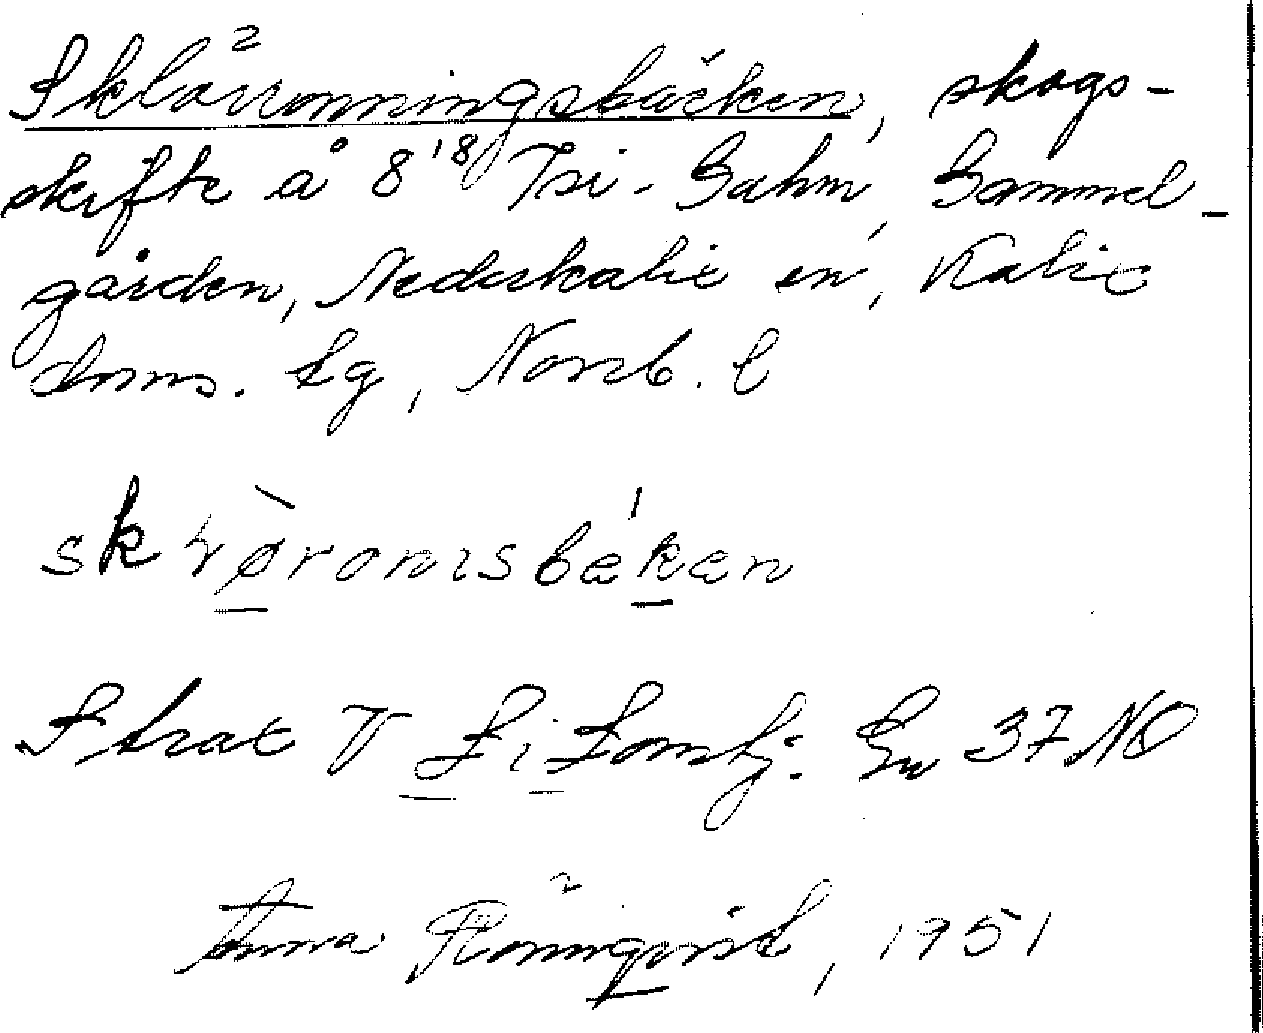 Sklörronningsbäcken, skogs-
skifte å 8 18/ Isi-Gahm, Gammel-
gården, Nederkalix sn, Kalix
doms. lg, Norrb. l
skrøronɩsbækæn
Strax V Lomtj: Gu 37 NO
Anna Rönnqvist, 1951